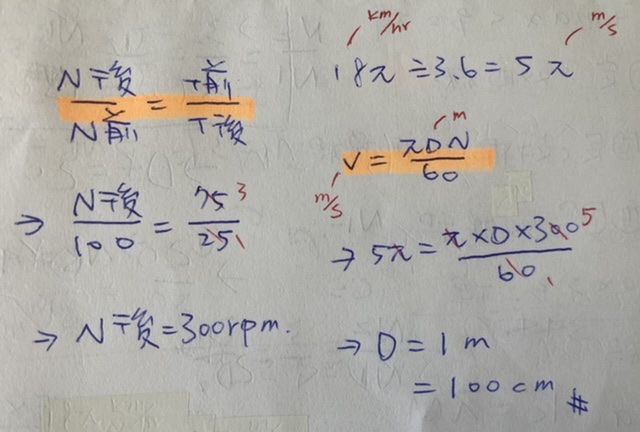 N後/N前 = T前/T後
⇒ N後/100 = 75 3/25 1
⇒ N後=300rpm.
km/hr m/s
18π ÷ 3.6 = 5π
m
V = πDN/60
m/s
→ 5π = π×D×300 5/60 1
→ D = 1 m
= 100 cm #